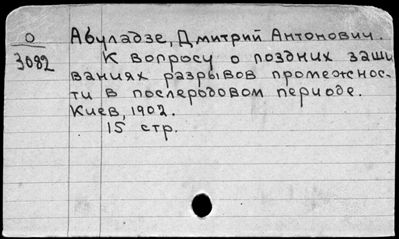 О
3082
Абуладзе, Дмитрий Антонович.
К вопросу о поздних заши
ваниях разрывов промежнос-
ти в послеродовом периоде.
Киев, 1902.
15 стр.